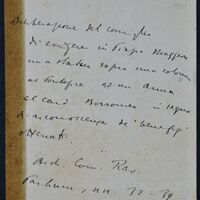 Deliberazione del consiglio
di erigere in Piazza Maggiore
una statua sopra una colonna
al Pontefice ed un' Arma
al card. Borromeo in segno
di riconoscenza di benefizi
ottenuti.
"
Arch. Com. Rav.
Parlum, nn. 32-39